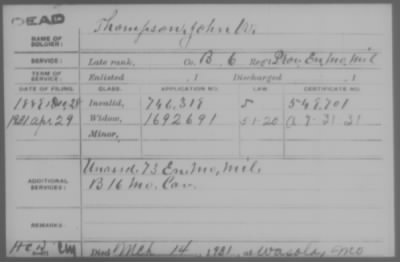 DEAD
Thompson, John W.
NAME OF SOLDIER:
SERVICE: Late rank, Co. B, 6 Reg't Prov. En. Mo. Mil.
TERM OF SERVICE: Enlisted , 1 Discharged , 1
DATE OF FILING. CLASS. APPLICATION NO. LAW. CERTIFICATE NO.
Invalid, 746,318
1921 Apr 29 Widow, 1692691 5-1-20
Minor,
ADDITIONAL SERVICES: Unassd. 73 En. Mo. Mil.
B 16 Mo. Cav.
REMARKS:
Died Mch 14, 1921, at Wasola, Mo